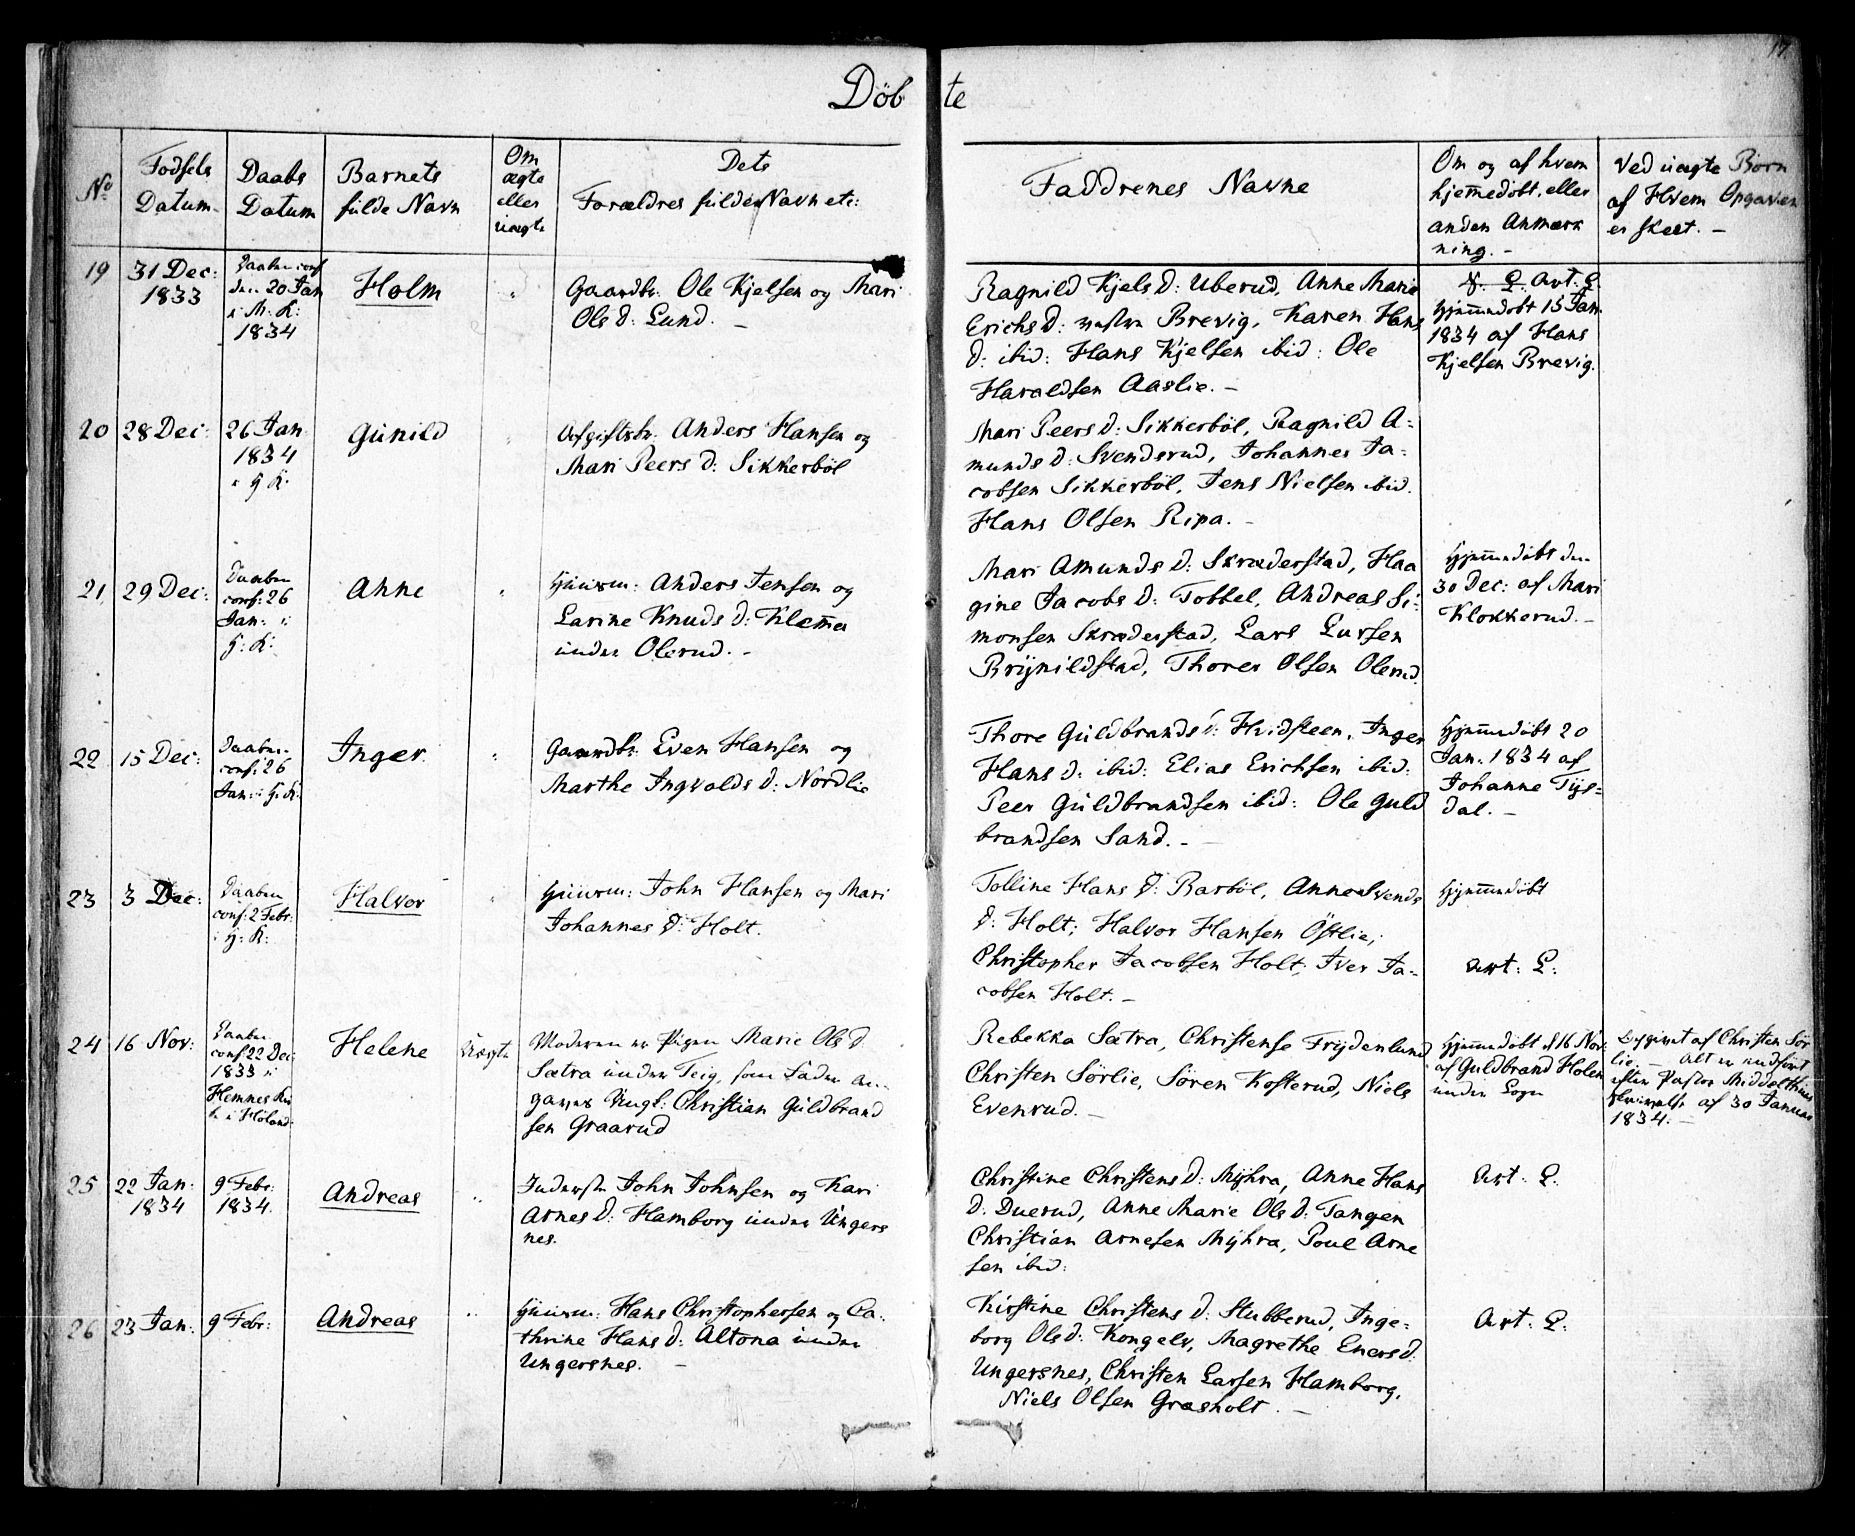 17.
Döb te
No
Fødsels
Datum.
Daabs
Datum
Barnets
fulde Navn
Om
ægte
eller
uægte
Dets
Forældres fulde Navn etc:
Faddrenes Navne
Om og af hvem
hjemedøbt, eller
anden Anmærk
ning. -
Ved uægte Børn
af Hvem Opgaven
er skeet. -
19
31 Dec:
1833
Daaben conf
den 20 Jan
i M. K:
1834
Holm
"
Gaardbr. Ole Kjelsen og Mari
Ols d: Lund. -
Ragnild Kjels d: Uberud, Anne Marie
Erichs d: Brevig, Karen Hans
d: ibid: Hans Kjelsen ibid: Ole
Haraldsen Aaslie. -
Art: L.
Hjemedøbt 15 Jan.
1834 af Hans
Kjelsen Brevig.
20
28 Dec:
26 Jan
1834
i H K.
Gunild
"
Afgiftsbr. Anders Hansen og
Mari Peers d: Sikkerböl
Mari Peers d: Sikkerböl, Ragnild A-
munds d: Svenderud, Johannes Ja-
cobsen Sikkerböl, Jens Nielsen ibid.
Hans Olsen Ripa. -
21
29 Dec:
Daaben
conf: 26
Jan: i
H: K:
Anne
"
Huusm: Anders Jensen og
Larine Knuds d: Klemma
under Olerud. -
Mari Amunds d: Skræderstad, Haa
gine Jacobs d: Tobbel, Andreas Si-
monsen Skræderstad, Lars Larsen
Brynildstad, Thorer Olsen Olerud.
Hjemedøbt den
30 Dec: af Mari
Klokkerud. -
22
15 Dec:
Daaben
conf: 26
Jan: i H. K.
Inger
"
Gaardbr: Even Hansen og
Marthe Ingvolds d: Nordlie
Thore Guldbrands d: Hvidsteen, Inger
Hans d. ibid: Elias Erichsen ibid:
Peer Guldbrandsen ibid: Ole Guld
brandsen Sand. -
Hjemedøbt 20
Jan. 1834 af
Johanne Tys-
dal. -
23
3 Dec:
Daaben
conf: 2 Febr:
i H: K:
Halvor
"
Huusm: John Hansen og Mari
Johannes d: Holt.
Tolline Hans d: Barböl, Anne Svends
d: Holt; Halvor Hansen Östlie;
Christopher Jacobsen Holt; Iver Ja-
cobsen Holt. -
Hjemedøbt
Art: L:
24
16 Nov:
Daaben
conf 22 Dec:
1833 i
Hemnes Kir
ke i Höland.
Helene
Uægte
Moderen er Pigen Marie Ols d
Sætra under Teig, som Fader an-
gaves Ungk: Christian Guldbrand
sen Graarud
Rebekka Sætra, Christense Frydenlund
Christen Sørlie, Sören Kosterud, Niels
Evenrud. -
Hjemedøbt d 16 Nov:
af Guldbrand Holen
under Sogn
Opgivet af Christen Sør
lie. - Alt er indført
efter Pastor Middelthuns
Skrivelse af 30 Januar
1834. -
25
22 Jan:
1834
9 Febr:
1834.
Andreas
"
Inderstr John Johnsen og Kari
Arnes d: Hamborg under Ungers
nes.
Christine Christens d: Myhra, Anne Hans
d. Duerud, Anne Marie Ols d: Tangen
Christian Arnesen Myhra, Poul Arne
sen ibid:
Art: L.
26
23 Jan:
9 Febr:
Andreas
"
Huusm: Hans Christophersen og Ca-
thrine Hans d: Altona under
Ungersnes. -
Kirstine Christens d: Stubberud, Inge-
borg Ols d: Kongelv, Magrethe Eners d.
Ungersnes, Christen Larsen Hamborg,
Niels Olsen Græsholt. -
Art: L: